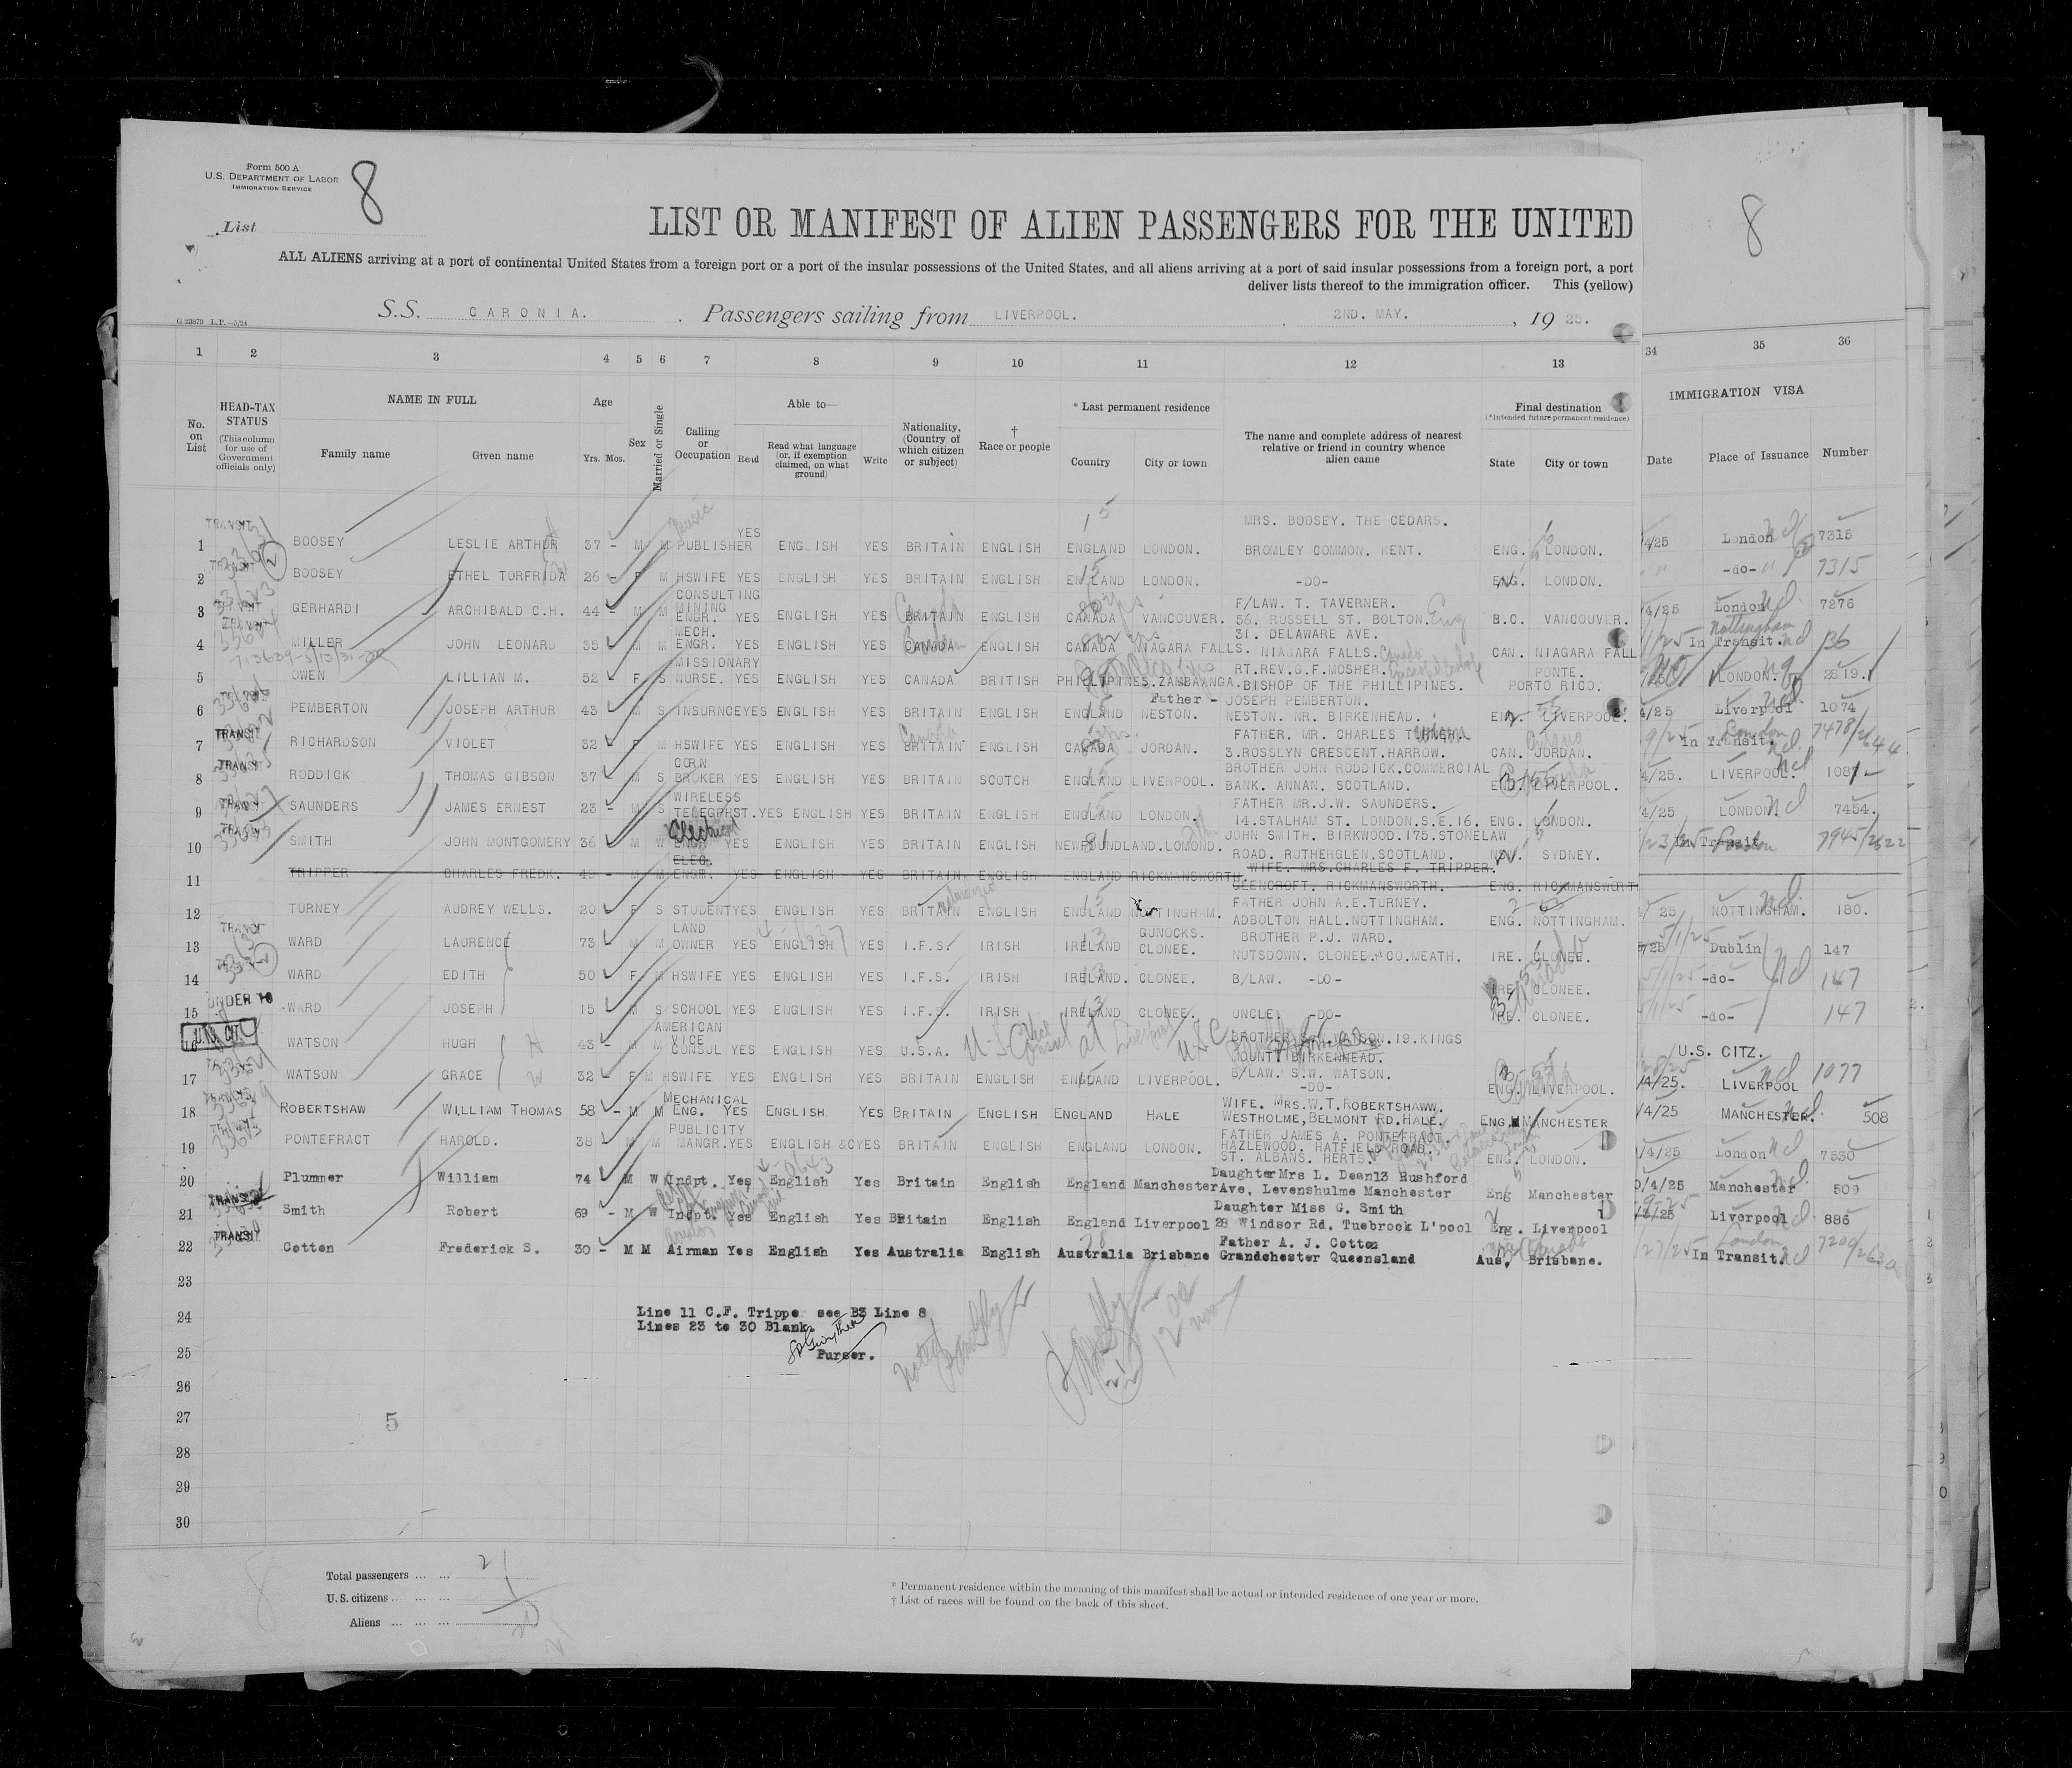 Form 500 A
U.S. DEPARTMENT OF LABOR
IMMIGRATION SERVICE
8
List
8
LIST OR MANIFEST OF ALIEN PASSENGERS FOR THE UNITED
ALL ALIENS arriving at a port of continental United States from a foreign port or a port of the insular possessions of the United States, and all aliens arriving at a port of said insular possessions from a foreign port, a port
deliver lists thereof to the immigration officer. This (yellow)
S.S. CARONIA. Passengers sailing from LIVERPOOL. 2ND. MAY. , 19 25.
G 23879 L.P.—5/24
1 2 3 4 5 6 7 8 9 10 11 12 13 34 35 36
No. on List
HEAD-TAX STATUS
(This column for use of Government officials only)
NAME IN FULL
Family name Given name
Age
Yrs. Mos.
Sex
Married or Single
Calling or Occupation
Able to—
Read
Read what language (or, if exemption claimed, on what ground)
Write
Nationality, (Country of which citizen or subject)
† Race or people
* Last permanent residence
Country City or town
The name and complete address of nearest relative or friend in country whence alien came
Final destination
(*Intended future permanent residence)
State City or town
IMMIGRATION VISA
Date Place of Issuance Number
MRS. BOOSEY. THE CEDARS.
1 BOOSEY LESLIE ARTHUR 37 - M M Music PUBLISHER YES ENGLISH YES BRITAIN ENGLISH ENGLAND LONDON. BROMLEY COMMON. KENT. ENG. LONDON. 4/25 London 7315
2 BOOSEY ETHEL TORFRIDA 26 - F M HSWIFE YES ENGLISH YES BRITAIN ENGLISH ENGLAND LONDON. -DO- ENG. LONDON. -do- 7315
CONSULTING MINING F/LAW. T. TAVERNER.
3 GERHARDI ARCHIBALD C.H. 44 - M M ENGR. YES ENGLISH YES BRITAIN ENGLISH CANADA VANCOUVER. 56. RUSSELL ST. BOLTON. Eng B.C. VANCOUVER. /4/25 London 7276
MECH. 31. DELAWARE AVE. Nottingham
4 MILLER JOHN LEONARD 35 M M ENGR. YES ENGLISH YES CANADA ENGLISH CANADA NIAGARA FALLS. NIAGARA FALLS. Canada CAN. NIAGARA FALL In Transit. 136
MISSIONARY RT.REV.G.F.MOSHER. PONTE.
5 OWEN LILLIAN M. 52 F S NURSE. YES ENGLISH YES CANADA BRITISH PHILLIPINES.ZAMBAANGA. BISHOP OF THE PHILLIPINES. PORTO RICO. LONDON. 2819.
Father - JOSEPH PEMBERTON.
6 PEMBERTON JOSEPH ARTHUR 43 M S INSURNCE YES ENGLISH YES BRITAIN ENGLISH ENGLAND NESTON. NESTON. NR. BIRKENHEAD. ENG. LIVERPOOL. 4/25 Liverpool 1074
FATHER. MR. CHARLES T. London
7 RICHARDSON VIOLET 32 F M HSWIFE YES ENGLISH YES BRITAIN ENGLISH CANADA JORDAN. 3.ROSSLYN CRESCENT.HARROW. CAN. JORDAN. In Transit. 7478/2644
CORN BROTHER JOHN RODDICK.COMMERCIAL
8 RODDICK THOMAS GIBSON 37 M S BROKER YES ENGLISH YES BRITAIN SCOTCH ENGLAND LIVERPOOL. BANK. ANNAN. SCOTLAND. ENG. LIVERPOOL. 4/25. LIVERPOOL.
WIRELESS FATHER MR.J.W. SAUNDERS.
9 SAUNDERS JAMES ERNEST 23 - M S TELEGPHST. YES ENGLISH YES BRITAIN ENGLISH ENGLAND LONDON. 14.STALHAM ST. LONDON.S.E.16. ENG. LONDON. 4/25 LONDON 7454.
Electrical JOHN SMITH. BIRKWOOD.175.STONELAW
10 SMITH JOHN MONTGOMERY 36 M W ENGR YES ENGLISH YES BRITAIN ENGLISH NEWFOUNDLAND.LOMOND. ROAD. RUTHERGLEN.SCOTLAND. SYDNEY. In Transit 7945/2622
ELEC. WIFE. MRS.CHARLES F. TRIPPER.
11 TRIPPER CHARLES FREDK. 49 - M M ENGR. YES ENGLISH YES BRITAIN ENGLISH ENGLAND RICKMANSWORTH. GLENCROFT. RICKMANSWORTH. ENG. RICKMANSWORT
FATHER JOHN A.E.TURNEY.
12 TURNEY AUDREY WELLS. 20 F S STUDENT YES ENGLISH YES BRITAIN ENGLISH ENGLAND NOTTINGHAM. ADBOLTON HALL.NOTTINGHAM. ENG. NOTTINGHAM. / 25 NOTTINGHAM. 180.
LAND GUNOCKS. BROTHER P.J. WARD.
13 WARD LAURENCE 73 M M OWNER YES ENGLISH YES I.F.S. IRISH IRELAND CLONEE. NUTSDOWN. CLONEE. CO.MEATH. IRE. CLONEE. 5/25 Dublin 147
14 WARD EDITH 50 F M HSWIFE YES ENGLISH YES I.F.S. IRISH IRELAND. CLONEE. B/LAW. -DO- IRE. CLONEE. -do- 147
UNDER 16
15 WARD JOSEPH 15 M S SCHOOL YES ENGLISH YES I.F.S. IRISH IRELAND CLONEE. UNCLE. -DO- IRE. CLONEE. -do- 147
U.S. CIT.
AMERICAN VICE BROTHER S.W. WATSON.19.KINGS
16 WATSON HUGH 43 - M M CONSUL YES ENGLISH YES U.S.A. U.S. Vice Consul at Liverpool USC MOUNT. BIRKENHEAD. U.S. CITZ.
B/LAW. S.W. WATSON.
17 WATSON GRACE 32 - F M HSWIFE YES ENGLISH YES BRITAIN ENGLISH ENGLAND LIVERPOOL. -DO- ENG. LIVERPOOL. /4/25. LIVERPOOL 1077
MECHANICAL WIFE. MRS.W.T.ROBERTSHAWW.
18 ROBERTSHAW WILLIAM THOMAS 58 - M M ENG. YES ENGLISH YES BRITAIN ENGLISH ENGLAND HALE WESTHOLME,BELMONT RD.HALE. ENG. MANCHESTER /4/25 MANCHESTER. 508
PUBLICITY FATHER JAMES A. PONTEFRACT.
19 PONTEFRACT HAROLD. 38 M M MANGR. YES ENGLISH &C YES BRITAIN ENGLISH ENGLAND LONDON. HAZLEWOOD. HATFIELD ROAD. ST. ALBANS. HERTS. ENG. LONDON. /4/25 London 7530
Daughter Mrs L. Dean 13 Rushford
20 Plummer William 74 M W Indpt. Yes English Yes Britain English England Manchester Ave, Levenshulme Manchester Eng Manchester 0/4/25 Manchester 509
Daughter Miss G. Smith
21 Smith Robert 69 - M W Indpt. Yes English Yes Britain English England Liverpool 28 Windsor Rd. Tuebrook L'pool Eng. Liverpool Liverpool 886
TRANSIT Father A. J. Cotton London
22 Cotton Frederick S. 30 - M M Airman Yes English Yes Australia English Australia Brisbane Grandchester Queensland Aus. Brisbane. In Transit.
23
24 Line 11 C.F. Trippe see B3 Line 8
Lines 23 to 30 Blank.
25 Purser.
26
27 5
28
29
30
Total passengers ... ... 21
U.S. citizens ... ... 1
Aliens ... ... ... 20
* Permanent residence within the meaning of this manifest shall be actual or intended residence of one year or more.
† List of races will be found on the back of this sheet.